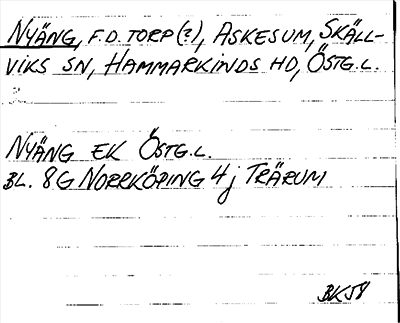 NYÄNG, F.D. TORP(?), ASKESUM, SKÄLL-
VIKS SN, HAMMARKINDS HD, ÖSTG.L.
NYÄNG EK ÖSTG.L.
BL. 8G NORRKÖPING 4j TRÄRUM
BK58